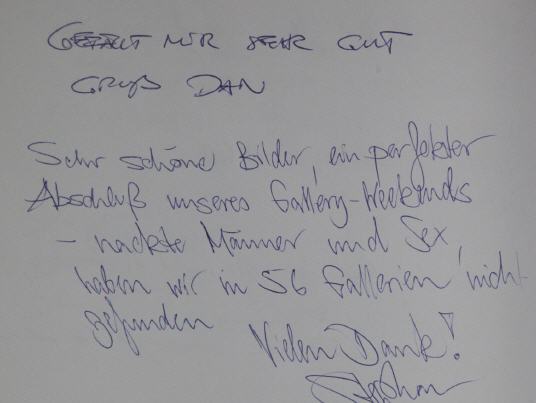 GEFÄLLT MIR SEHR GUT
GRUß DAN
Sehr schöne Bilder, ein perfekter
Abschluß unseres Gallery-Weekends
- nackte Männer und Sex,
haben wir in 56 Gallerien nicht
gefunden
Vielen Dank!
Stephan